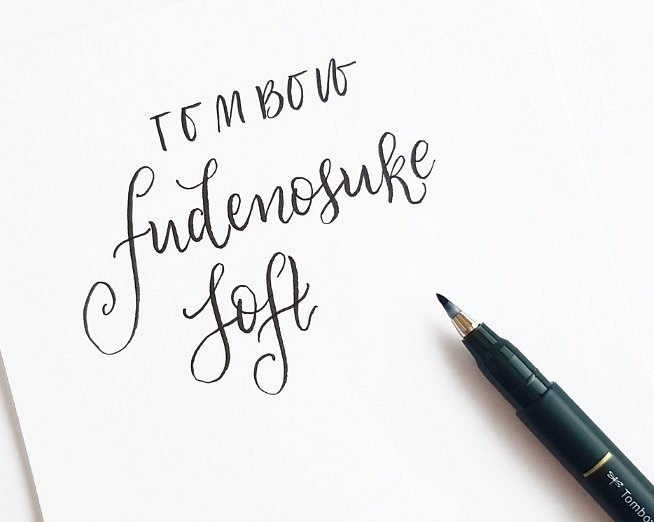 TOMBOW
fudenosuke
soft
Tombo